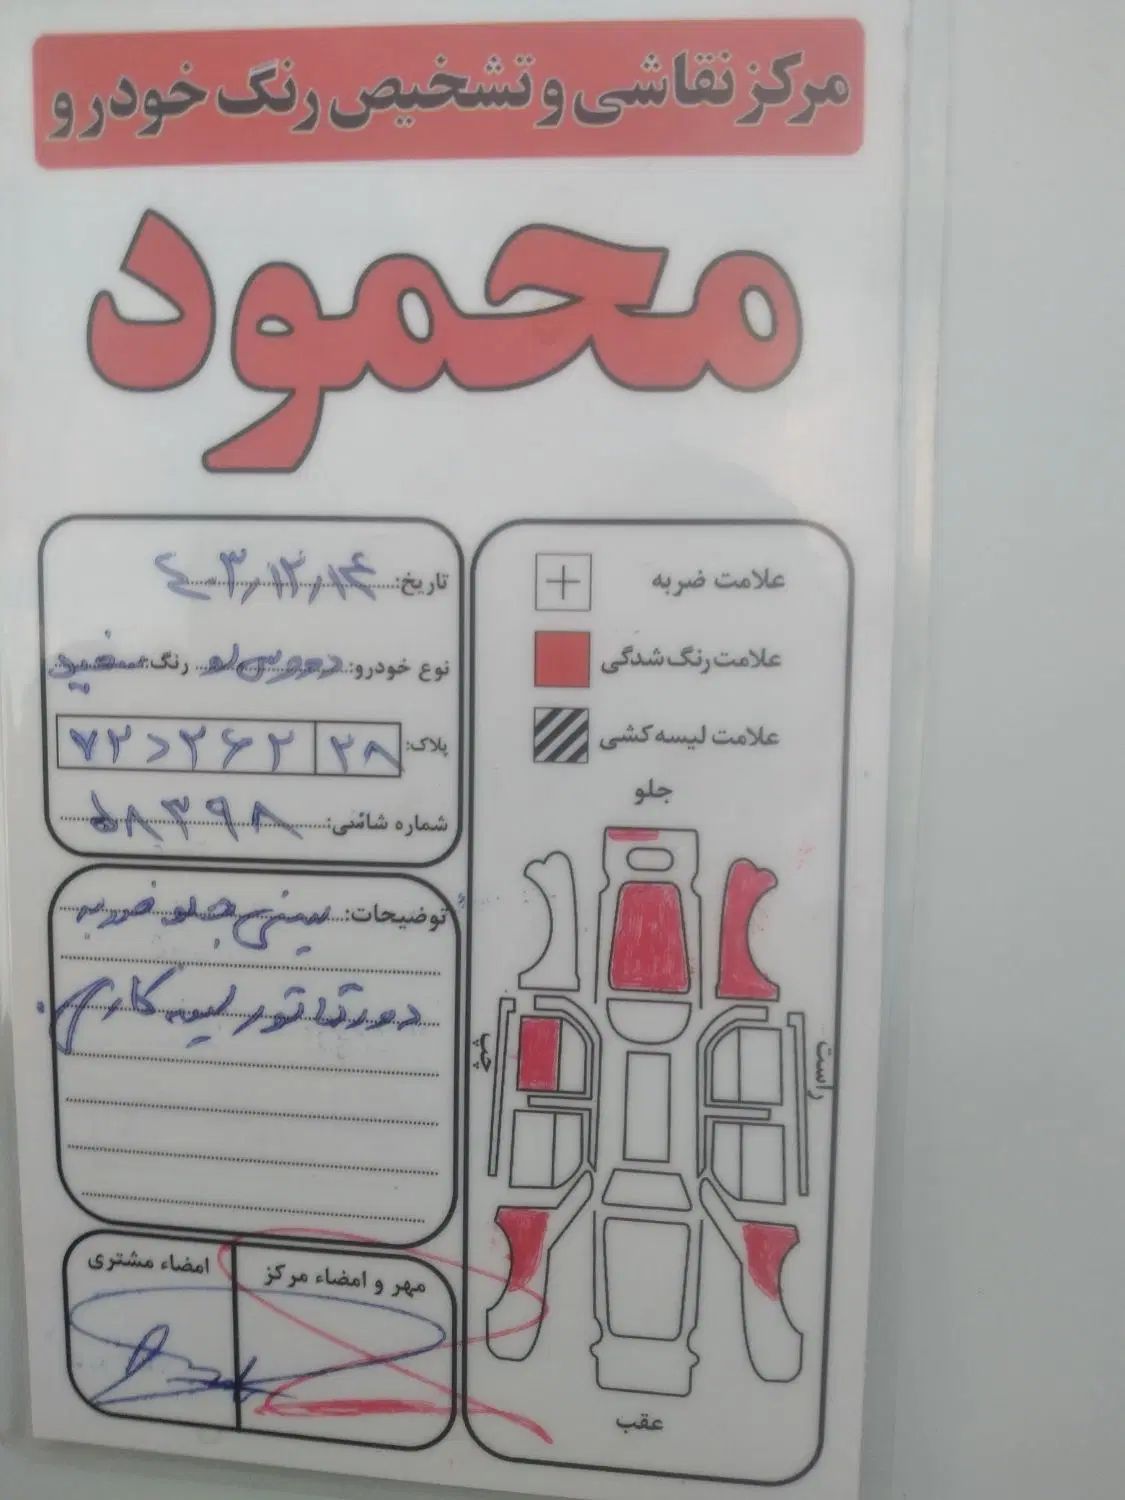 مرکز نقاشی و تشخیص رنگ خودرو
محمود
علامت ضربه
علامت رنگ شدگی
علامت لیسه کشی
جلو
راست
چپ
عقب
تاریخ: ۴۰۳٫۱۲٫۱۴
نوع خودرو: رنگ: سفید
پلاک: ۷۲ د ۲۶۲ ۲۸
شماره شاسی: ۵۸۳۹۸
توضیحات: سینی جلو ضربه
دور تا دور لیسه کاری.
مهر و امضاء مرکز
امضاء مشتری